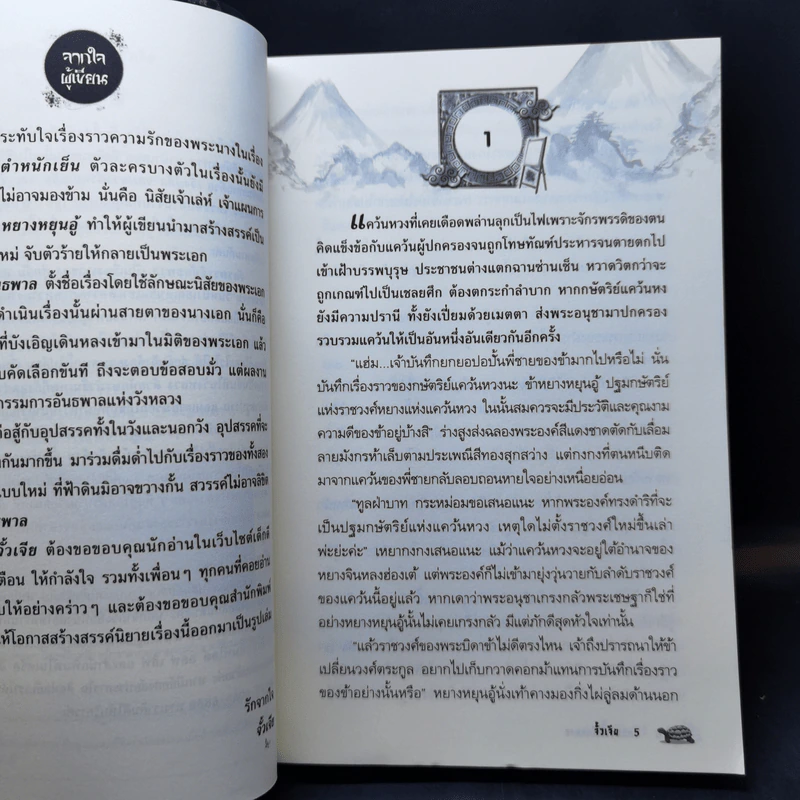 จากใจ
ผู้เขียน
ระทับใจเรื่องราวความรักของพระนางในเรื่อง
ตำหนักเย็น ตัวละครบางตัวในเรื่องนั้นยังมี
ไม่อาจมองข้าม นั่นคือ นิสัยเจ้าเล่ห์ เจ้าแผนการ
หยางหยุนอู้ ทำให้ผู้เขียนนำมาสร้างสรรค์เป็น
ใหม่ จับตัวร้ายให้กลายเป็นพระเอก
ันธพาล ตั้งชื่อเรื่องโดยใช้ลักษณะนิสัยของพระเอก
ดำเนินเรื่องนั้นผ่านสายตาของนางเอก นั่นก็คือ
ที่บังเอิญเดินหลงเข้ามาในมิติของพระเอก แล้ว
บคัดเลือกขันที ถึงจะตอบข้อสอบมั่ว แต่ผลงาน
กรรมการอันธพาลแห่งวังหลวง
ือสู้กับอุปสรรคทั้งในวังและนอกวัง อุปสรรคที่จะ
งกันมากขึ้น มาร่วมดื่มด่ำไปกับเรื่องราวของทั้งสอง
แบบใหม่ ที่ฟ้าดินมิอาจขวางกั้น สวรรค์ไม่อาจลิขิต
ธพาล
จิ๋วเจีย ต้องขอขอบคุณนักอ่านในเว็บไซต์เด็กดี
เดือน ให้กำลังใจ รวมทั้งเพื่อนๆ ทุกคนที่คอยอ่าน
บให้อย่างคร่าวๆ และต้องขอขอบคุณสำนักพิมพ์
ให้โอกาสสร้างสรรค์นิยายเรื่องนี้ออกมาเป็นรูปเล่ม
รักจากใจ
จิ๋วเจีย
1
แคว้นหวงที่เคยเดือดพล่านลุกเป็นไฟเพราะจักรพรรดิของตน
คิดแข็งข้อกับแคว้นผู้ปกครองจนถูกโทษทัณฑ์ประหารจนตายตกไป
เข้าเฝ้าบรรพบุรุษ ประชาชนต่างแตกฉานซ่านเซ็น หวาดวิตกว่าจะ
ถูกเกณฑ์ไปเป็นเชลยศึก ต้องตกระกำลำบาก หากกษัตริย์แคว้นหง
ยังมีความปรานี ทั้งยังเปี่ยมด้วยเมตตา ส่งพระอนุชามาปกครอง
รวบรวมแคว้นให้เป็นอันหนึ่งอันเดียวกันอีกครั้ง
"แฮ่ม...เจ้าบันทึกยกยอปอปั้นพี่ชายของข้ามากไปหรือไม่ นั่น
บันทึกเรื่องราวของกษัตริย์แคว้นหวงนะ ข้าหยางหยุนอู้ ปฐมกษัตริย์
แห่งราชวงศ์หยางแห่งแคว้นหวง ในนั้นสมควรจะมีประวัติและคุณงาม
ความดีของข้าอยู่บ้างสิ" ร่างสูงส่งฉลองพระองค์สีแดงชาดตัดกับเลื่อม
ลายมังกรห้าเล็บตามประเพณีสีทองสุกสว่าง แต่กงกงที่ตนหนีบติด
มาจากแคว้นของพี่ชายกลับลอบถอนหายใจอย่างเหนื่อยอ่อน
"ทูลฝ่าบาท กระหม่อมขอเสนอแนะ หากพระองค์ทรงดำริที่จะ
เป็นปฐมกษัตริย์แห่งแคว้นหวง เหตุใดไม่ตั้งราชวงศ์ใหม่ขึ้นเล่า
พ่ะย่ะค่ะ" เหยากงกงเสนอแนะ แม้ว่าแคว้นหวงจะอยู่ใต้อำนาจของ
หยางจินหลงฮ่องเต้ แต่พระองค์ก็ไม่เข้ามายุ่งวุ่นวายกับลำดับราชวงศ์
ของแคว้นนี้อยู่แล้ว หากเดาว่าพระอนุชาเกรงกลัวพระเชษฐาก็ใช่ที่
อย่างหยางหยุนอู้นั้นไม่เคยเกรงกลัว มีแต่ภักดีสุดหัวใจเท่านั้น
"แล้วราชวงศ์ของพระบิดาข้าไม่ดีตรงไหน เจ้าถึงปรารถนาให้ข้า
เปลี่ยนวงศ์ตระกูล อยากไปเก็บกวาดคอกม้าแทนการบันทึกเรื่องราว
ของข้าอย่างนั้นหรือ" หยางหยุนอู้นั่งเท้าคางมองกิ่งไผ่ลู่ลมด้านนอก
จิ๋วเจีย 5